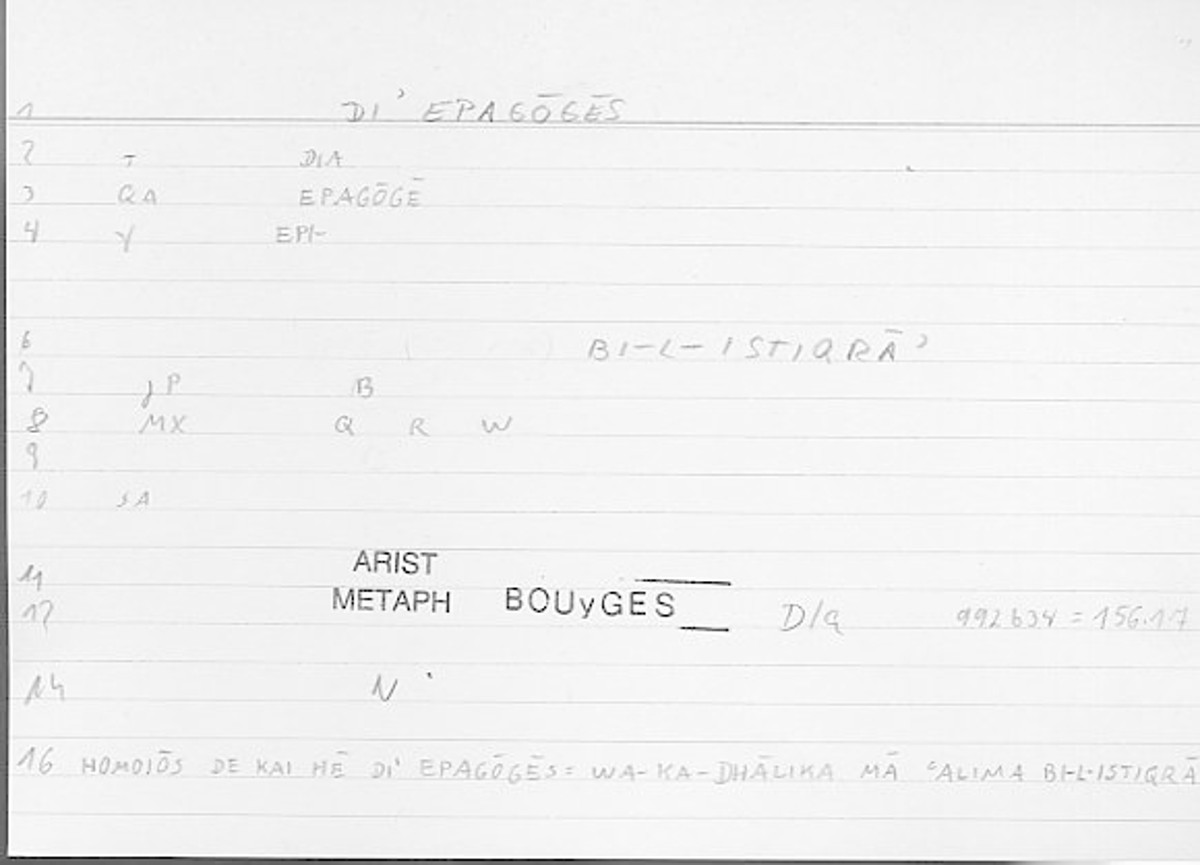 1 DI' EPAGŌGĒS
2 T DIA
3 QA EPAGŌGĒ
4 γ EPI-
6 BI-L-ISTIQRĀʾ
7 JP B
8 MX Q R W
9
10 SA
ARIST
11
METAPH BOUyGES
12 D/a 992b34 = 156.17
14 N
16 HOMOIŌS DE KAI HĒ DI' EPAGŌGĒS = WA-KA-DHĀLIKA MĀ ʿALIMA BI-L-ISTIQRĀ